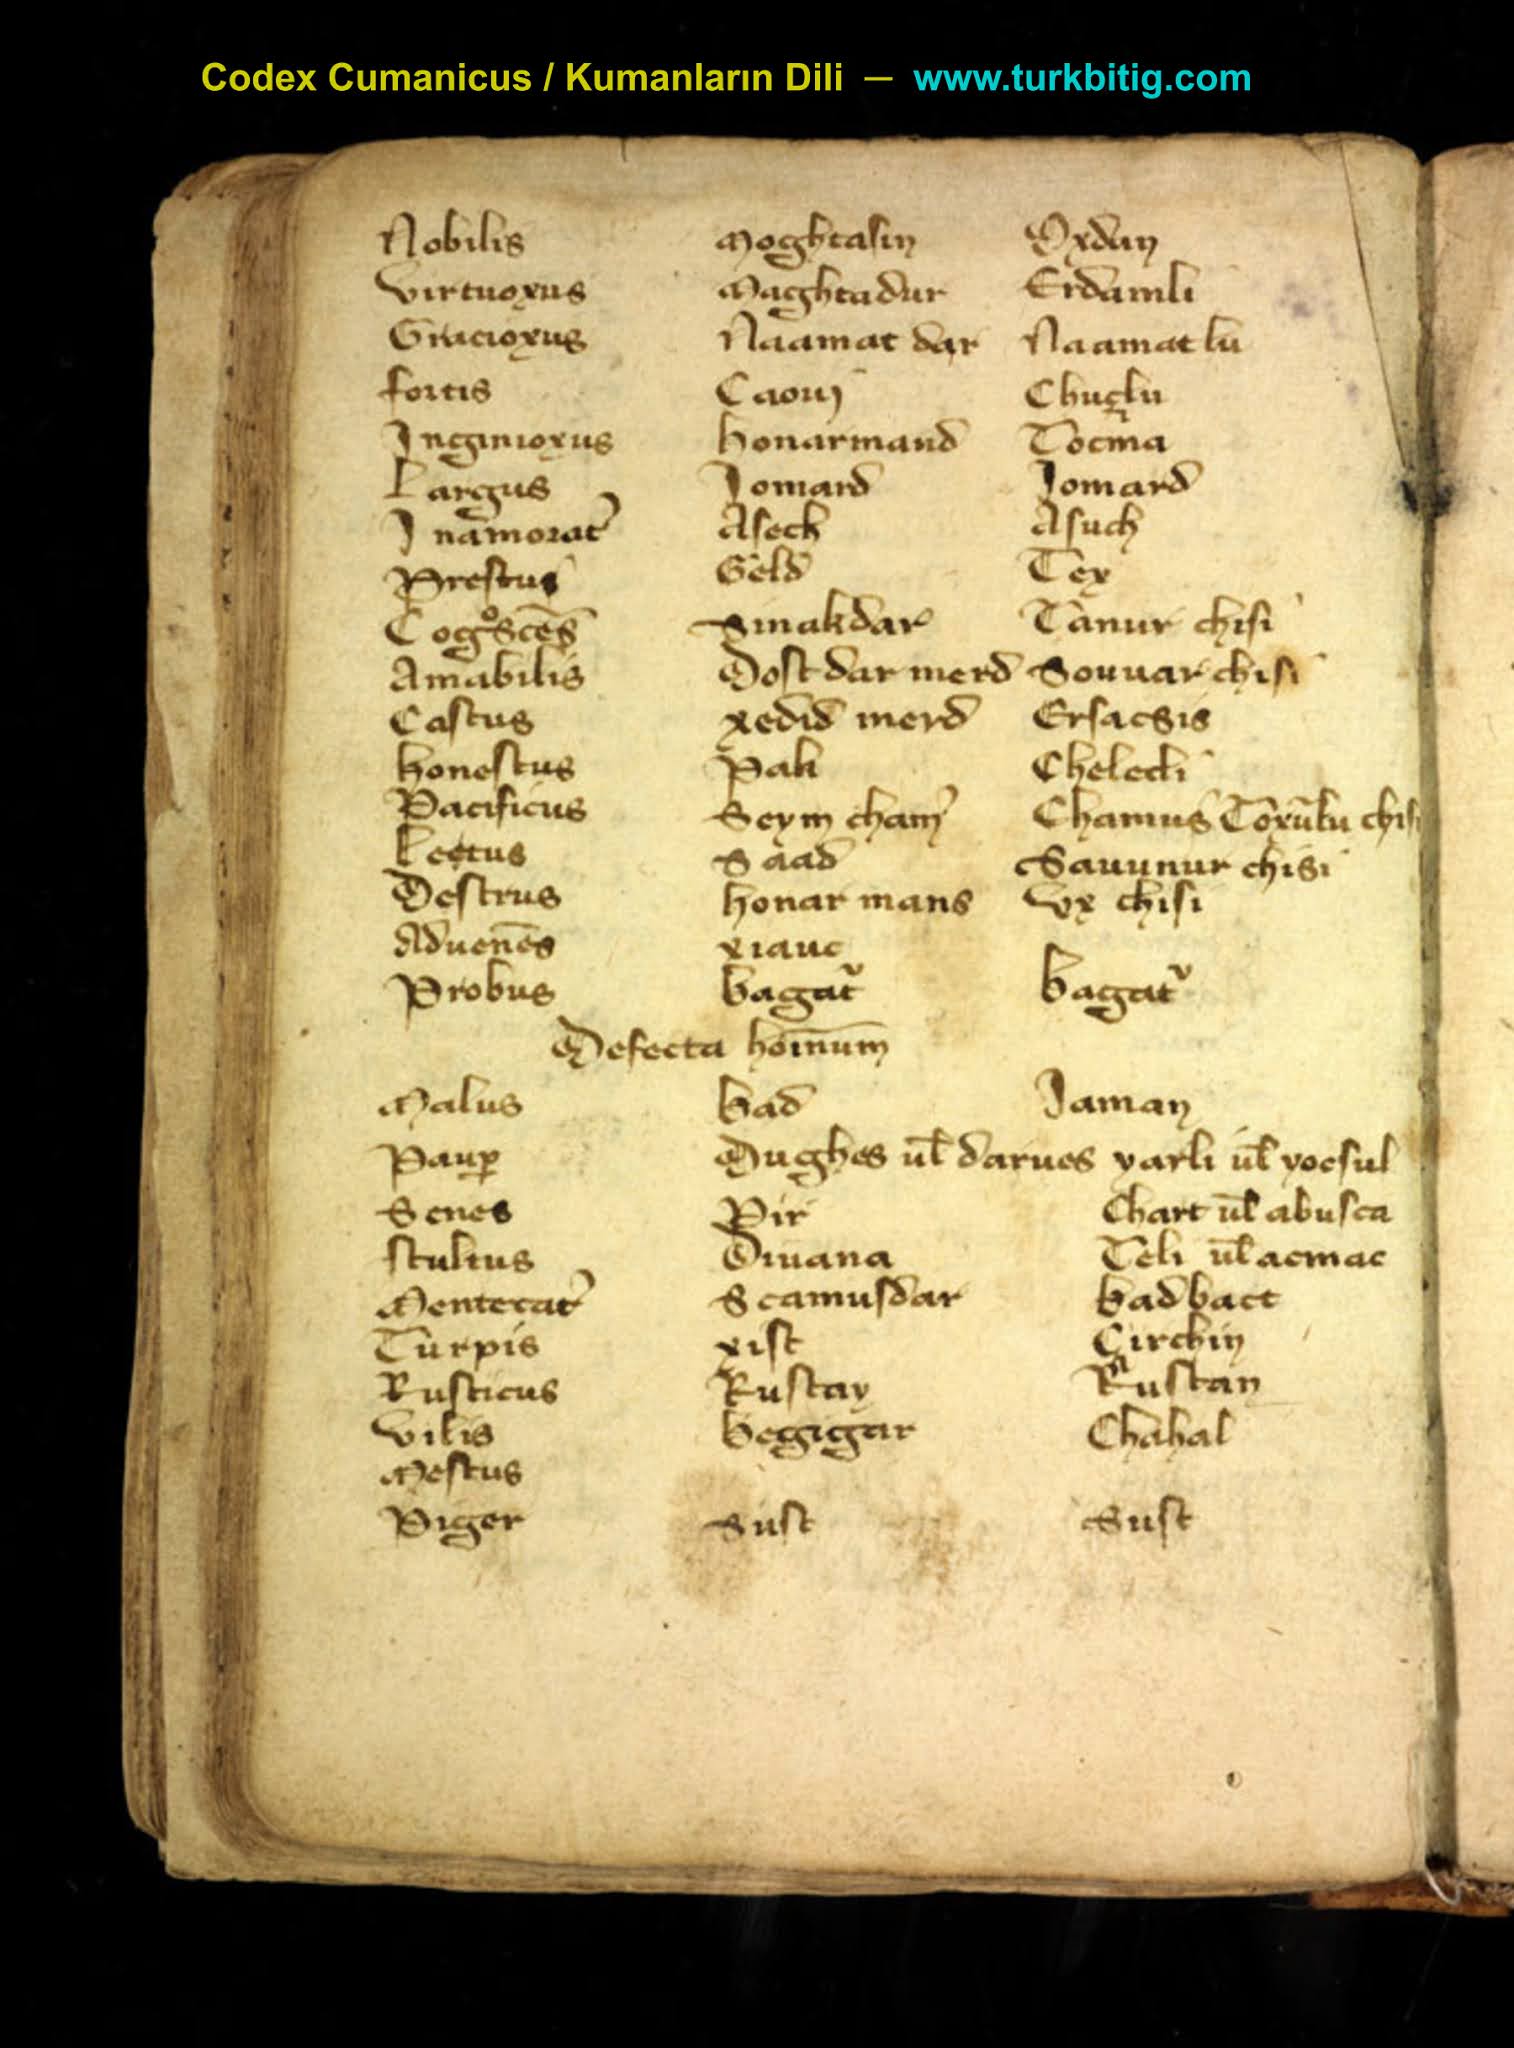 Codex Cumanicus / Kumanların Dili — www.turkbitig.com
Nobilis Moghtasin Oxdan
Virtuoxus Maghtadur Erdamli
Gracioxus Naamat dar Naamat lu
fortis Caoui Chuçlu
Inginioxus honarmand Tocma
Largus Jomard Jomard
Inamorat᾽ Aseck Asuch
Prestus Geld Tex
Cogᵒscēs Sinakdar Tanur chisi
Amabilis Dost dar merd Souuar chisi
Castus xedid merd Ersacsis
honestus Pak Chelecli
Pacificus Seym cham᾽ Chamus Toxūlu chisi
Lectus Saad Sauunur chisi
Destrus honar mans vx chisi
Aduenēs xiauc
Probus bagat᾽ bagat᾽
Defecta hoīnum
Malus bad Jaman
Paup̱ Dughes ul̄ darues yarli ul̄ yocsul
Senes Pir Chart ul̄ abusca
stultus Diuana Teli ul̄ acmac
Mentecat᾽ Scamusdar badbact
Turpis xist Circhin
Rusticus Rustay Rustan
Vilis begigar Chahal
Mestus
Piger Sust Sust